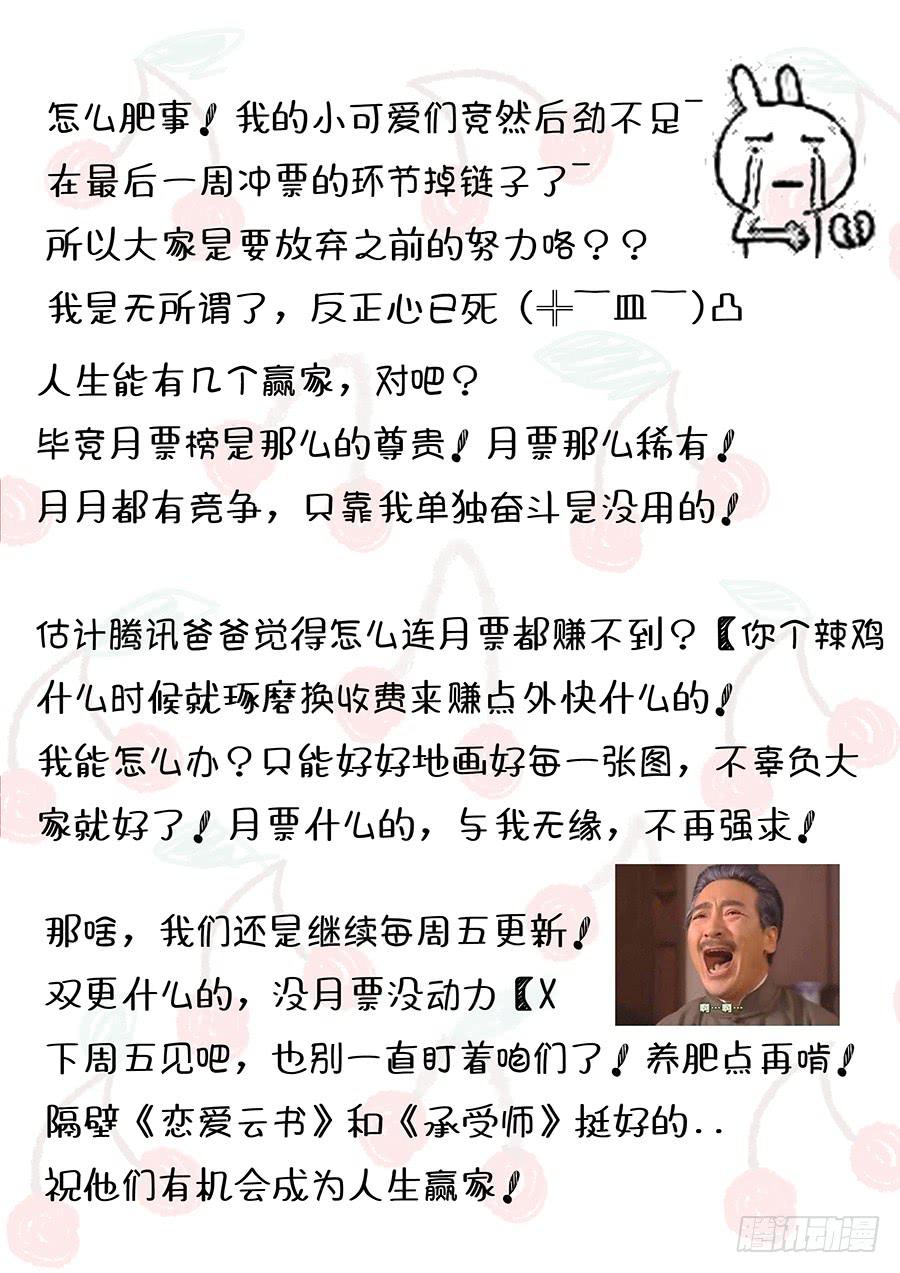 怎么肥事！我的小可爱们竟然后劲不足¯
在最后一周冲票的环节掉链子了¯
所以大家是要放弃之前的努力咯？？
我是无所谓了，反正心已死（╬￣皿￣）凸
人生能有几个赢家，对吧？
毕竟月票榜是那么的尊贵！月票那么稀有！
月月都有竞争，只靠我单独奋斗是没用的！
估计腾讯爸爸觉得怎么连月票都赚不到？【你个辣鸡
什么时候就琢磨换收费来赚点外快什么的！
我能怎么办？只能好好地画好每一张图，不辜负大
家就好了！月票什么的，与我无缘，不再强求！
那啥，我们还是继续每周五更新！
双更什么的，没月票没动力【X
啊…啊…
下周五见吧，也别一直盯着咱们了！养肥点再啃！
隔壁《恋爱云书》和《承受师》挺好的..
祝他们有机会成为人生赢家！
腾讯动漫